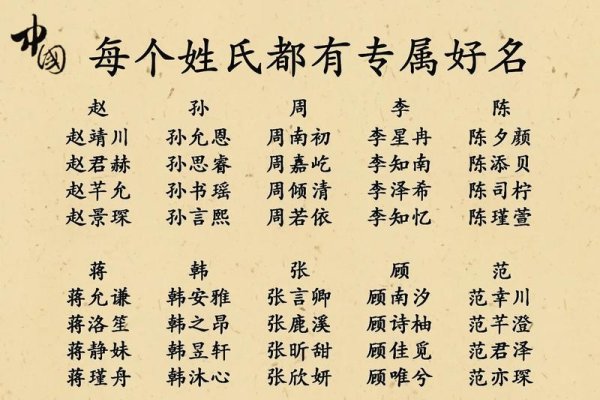 中國
每个姓氏都有专属好名
赵 孙 周 李 陈
赵靖川 孙允恩 周南初 李星冉 陈夕颜
赵君赫 孙思睿 周嘉屹 李知南 陈添贝
赵芊允 孙书瑶 周倾清 李泽希 陈司柠
赵景琛 孙言熙 周若依 李知忆 陈瑾萱
蒋 韩 张 顾 范
蒋允谦 韩安雅 张言卿 顾南汐 范幸川
蒋洛笙 韩之昂 张鹿溪 顾诗柚 范芊澄
蒋静姝 韩昱轩 张昕甜 顾佳觅 范君泽
蒋瑾舟 韩沐心 张欣妍 顾唯兮 范亦琛